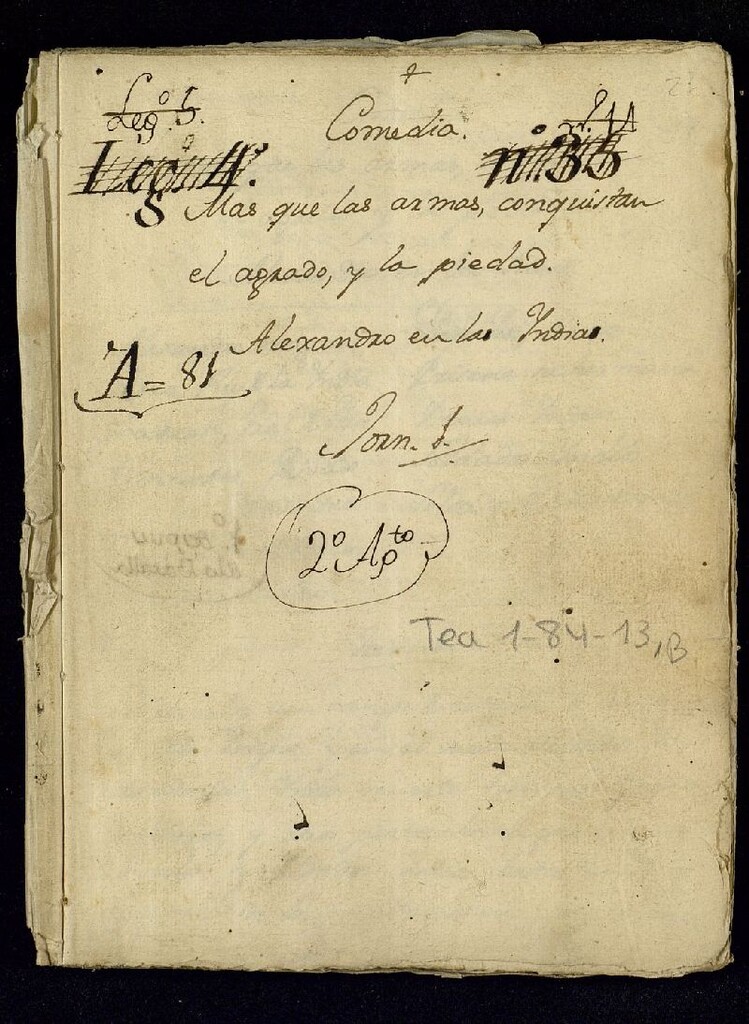 +
Leg.º 5.
Comedia.
Leg.º 4.
nº 35
Mas que las armas, conquistan
el agrado, y la piedad.
Alexandro en las Indias.
A = 81
Jorn. 1.
2º Ap.to
Tea 1-84-13, B